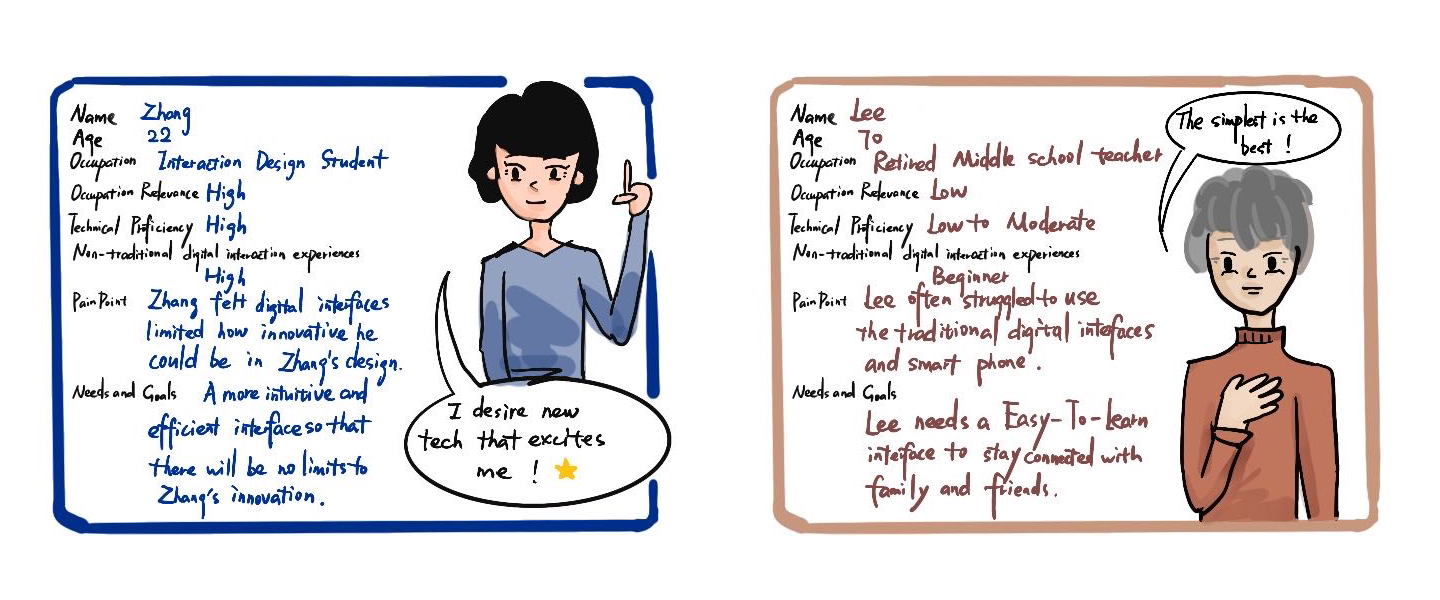 Name Zhang
Age 22
Occupation Interaction Design Student
Occupation Relevance High
Technical Proficiency High
Non-traditional digital interaction experiences
High
Pain Point Zhang felt digital interfaces
limited how innovative he
could be in Zhang's design.
Needs and Goals A more intuitive and
efficient interface so that
there will be no limits to
Zhang's innovation.
I desire new
tech that excites
me !
Name Lee
Age 70
Occupation Retired Middle school teacher
Occupation Relevance Low
Technical Proficiency Low to Moderate
Non-traditional digital interaction experiences
Beginner
Pain Point Lee often struggled to use
the traditional digital interfaces
and smart phone.
Needs and Goals
Lee needs a Easy-To-Learn
interface to stay connected with
family and friends.
The simplest is the
best !